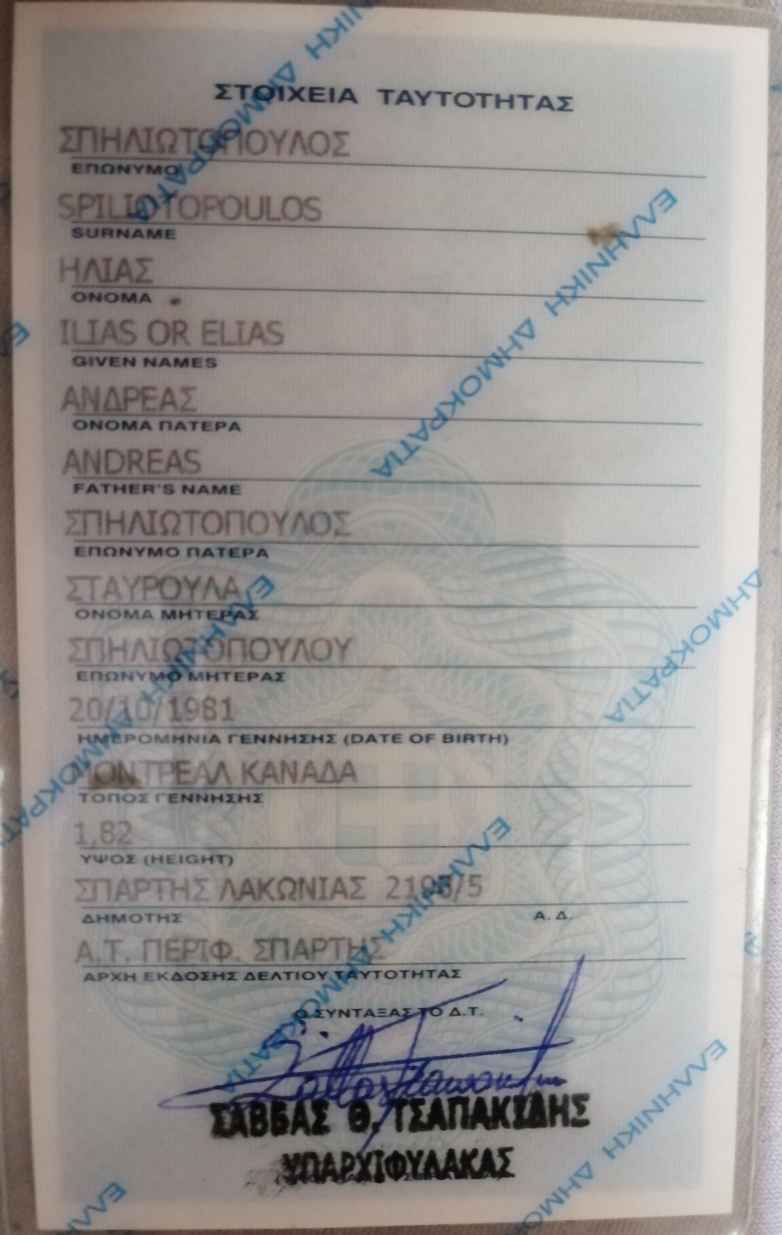 ΣΤΟΙΧΕΙΑ ΤΑΥΤΟΤΗΤΑΣ
ΣΠΗΛΙΩΤΟΠΟΥΛΟΣ
ΕΠΩΝΥΜΟ
SPILIOTOPOULOS
SURNAME
ΗΛΙΑΣ
ΟΝΟΜΑ
ILIAS OR ELIAS
GIVEN NAMES
ΑΝΔΡΕΑΣ
ΟΝΟΜΑ ΠΑΤΕΡΑ
ANDREAS
FATHER'S NAME
ΣΠΗΛΙΩΤΟΠΟΥΛΟΣ
ΕΠΩΝΥΜΟ ΠΑΤΕΡΑ
ΣΤΑΥΡΟΥΛΑ
ΟΝΟΜΑ ΜΗΤΕΡΑΣ
ΣΠΗΛΙΩΤΟΠΟΥΛΟΥ
ΕΠΩΝΥΜΟ ΜΗΤΕΡΑΣ
20/10/1981
ΗΜΕΡΟΜΗΝΙΑ ΓΕΝΝΗΣΗΣ (DATE OF BIRTH)
ΜΟΝΤΡΕΑΛ ΚΑΝΑΔΑ
ΤΟΠΟΣ ΓΕΝΝΗΣΗΣ
1,82
ΥΨΟΣ (HEIGHT)
ΣΠΑΡΤΗΣ ΛΑΚΩΝΙΑΣ
ΔΗΜΟΤΗΣ Α.Δ.
Α.Τ. ΠΕΡΙΦ. ΣΠΑΡΤΗΣ
ΑΡΧΗ ΕΚΔΟΣΗΣ ΔΕΛΤΙΟΥ ΤΑΥΤΟΤΗΤΑΣ
Ο ΣΥΝΤΑΞΑΣ ΤΟ Δ.Τ.
ΣΑΒΒΑΣ Θ. ΤΣΑΠΑΚΙΔΗΣ
ΥΠΑΡΧΙΦΥΛΑΚΑΣ
ΕΛΛΗΝΙΚΗ ΔΗΜΟΚΡΑΤΙΑ
ΕΛΛΗΝΙΚΗ ΔΗΜΟΚΡΑΤΙΑ
ΕΛΛΗΝΙΚΗ ΔΗΜΟΚΡΑΤΙΑ
ΕΛΛΗΝΙΚΗ ΔΗΜΟΚΡΑΤΙΑ
ΔΗΜΟΚΡΑΤΙΑ
ΕΛΛΗΝΙΚΗ ΔΗΜΟΚΡΑΤΙΑ